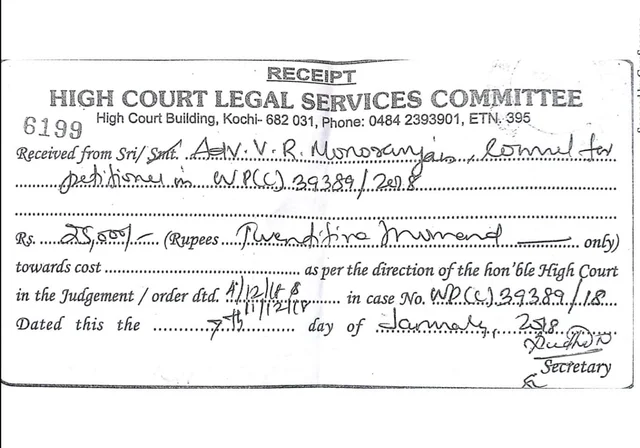 RECEIPT
HIGH COURT LEGAL SERVICES COMMITTEE
6199
High Court Building, Kochi- 682 031, Phone: 0484 2393901, ETN. 395
Received from Sri/ Smt. Adv. V. R. Manoranjan, Counsel for
petitioner in WP(C) 39389/2018
Rs. 25,000/- (Rupees Twentifive Thousand only)
towards cost as per the direction of the hon'ble High Court
in the Judgement / order dtd. 4/12/18 & in case No. WP(C) 39389/18
11/12/18
Dated this the 7th day of January, 2018
Secretary